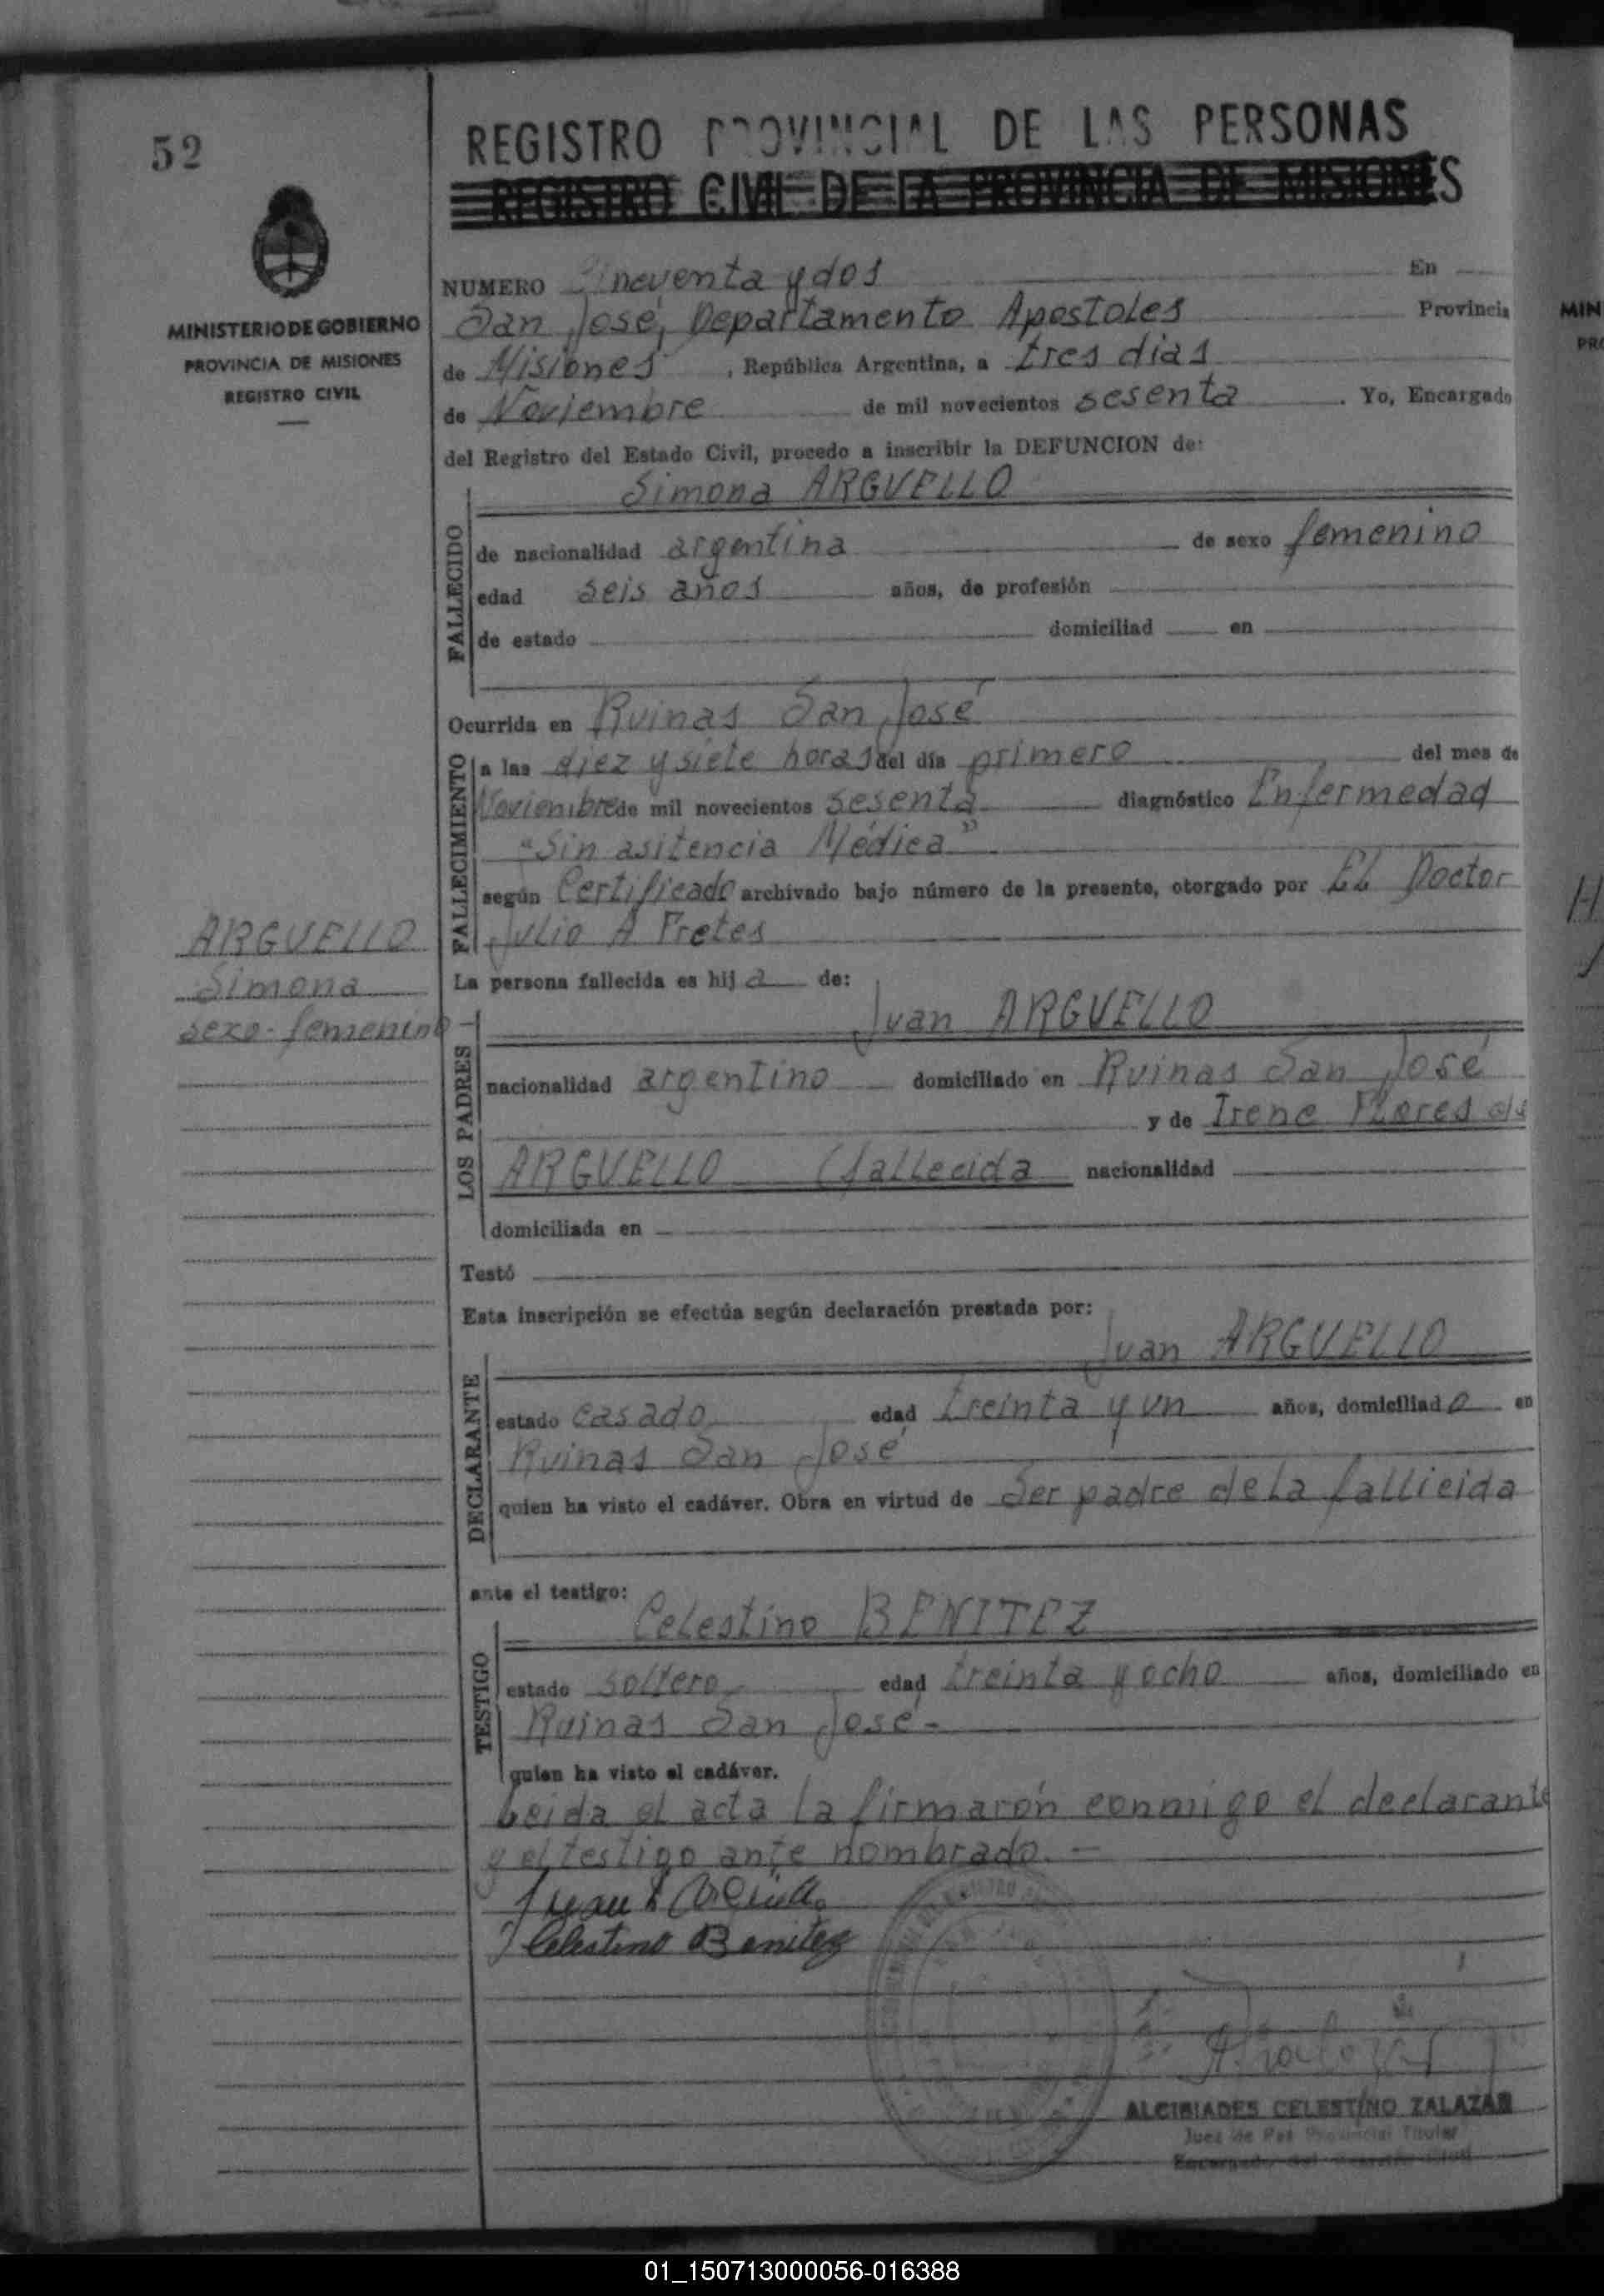 52
REGISTRO PROVINCIAL DE LAS PERSONAS
REGISTRO CIVIL DE LA PROVINCIA DE MISIONES
MINISTERIO DE GOBIERNO
PROVINCIA DE MISIONES
REGISTRO CIVIL
NUMERO Cincuenta y dos En
San José, Departamento Apostoles Provincia
de Misiones, República Argentina, a tres dias
de Noviembre de mil novecientos sesenta. Yo, Encargado
del Registro del Estado Civil, procedo a inscribir la DEFUNCION de:
Simona ARGUELLO
FALLECIDO
de nacionalidad argentina de sexo femenino
edad seis años años, de profesión
de estado domiciliad en
Ocurrida en Ruinas San José
FALLECIMIENTO
a las diez y siete horas del día primero del mes de
Noviembre de mil novecientos sesenta diagnóstico Enfermedad
"Sin asitencia Médica"
según Certificado archivado bajo número de la presente, otorgado por EL Doctor
Julio A Fretes
ARGUELLO
Simona
sexo-femenino
La persona fallecida es hija de:
Juan ARGUELLO
LOS PADRES
nacionalidad argentino domiciliado en Ruinas San José
y de Irene Flores de
ARGUELLO (fallecida nacionalidad
domiciliada en
Testó
Esta inscripción se efectúa según declaración prestada por:
Juan ARGUELLO
DECLARANTE
estado casado edad treinta y un años, domiciliado en
Ruinas San José
quien ha visto el cadáver. Obra en virtud de Ser padre de La fallicida
ante el testigo:
Celestino BENITEZ
TESTIGO
estado soltero edad treinta y ocho años, domiciliado en
Ruinas San José-
quien ha visto el cadáver.
Leida el acta la firmarón conmigo el declarante
y el testigo ante nombrado.-
Juan
Celestino Benitez
ALCIBIADES CELESTINO ZALAZAR
Juez de Paz Provincial Titular
Encargado del Registro Civil
MIN
PRO
01_150713000056-016388